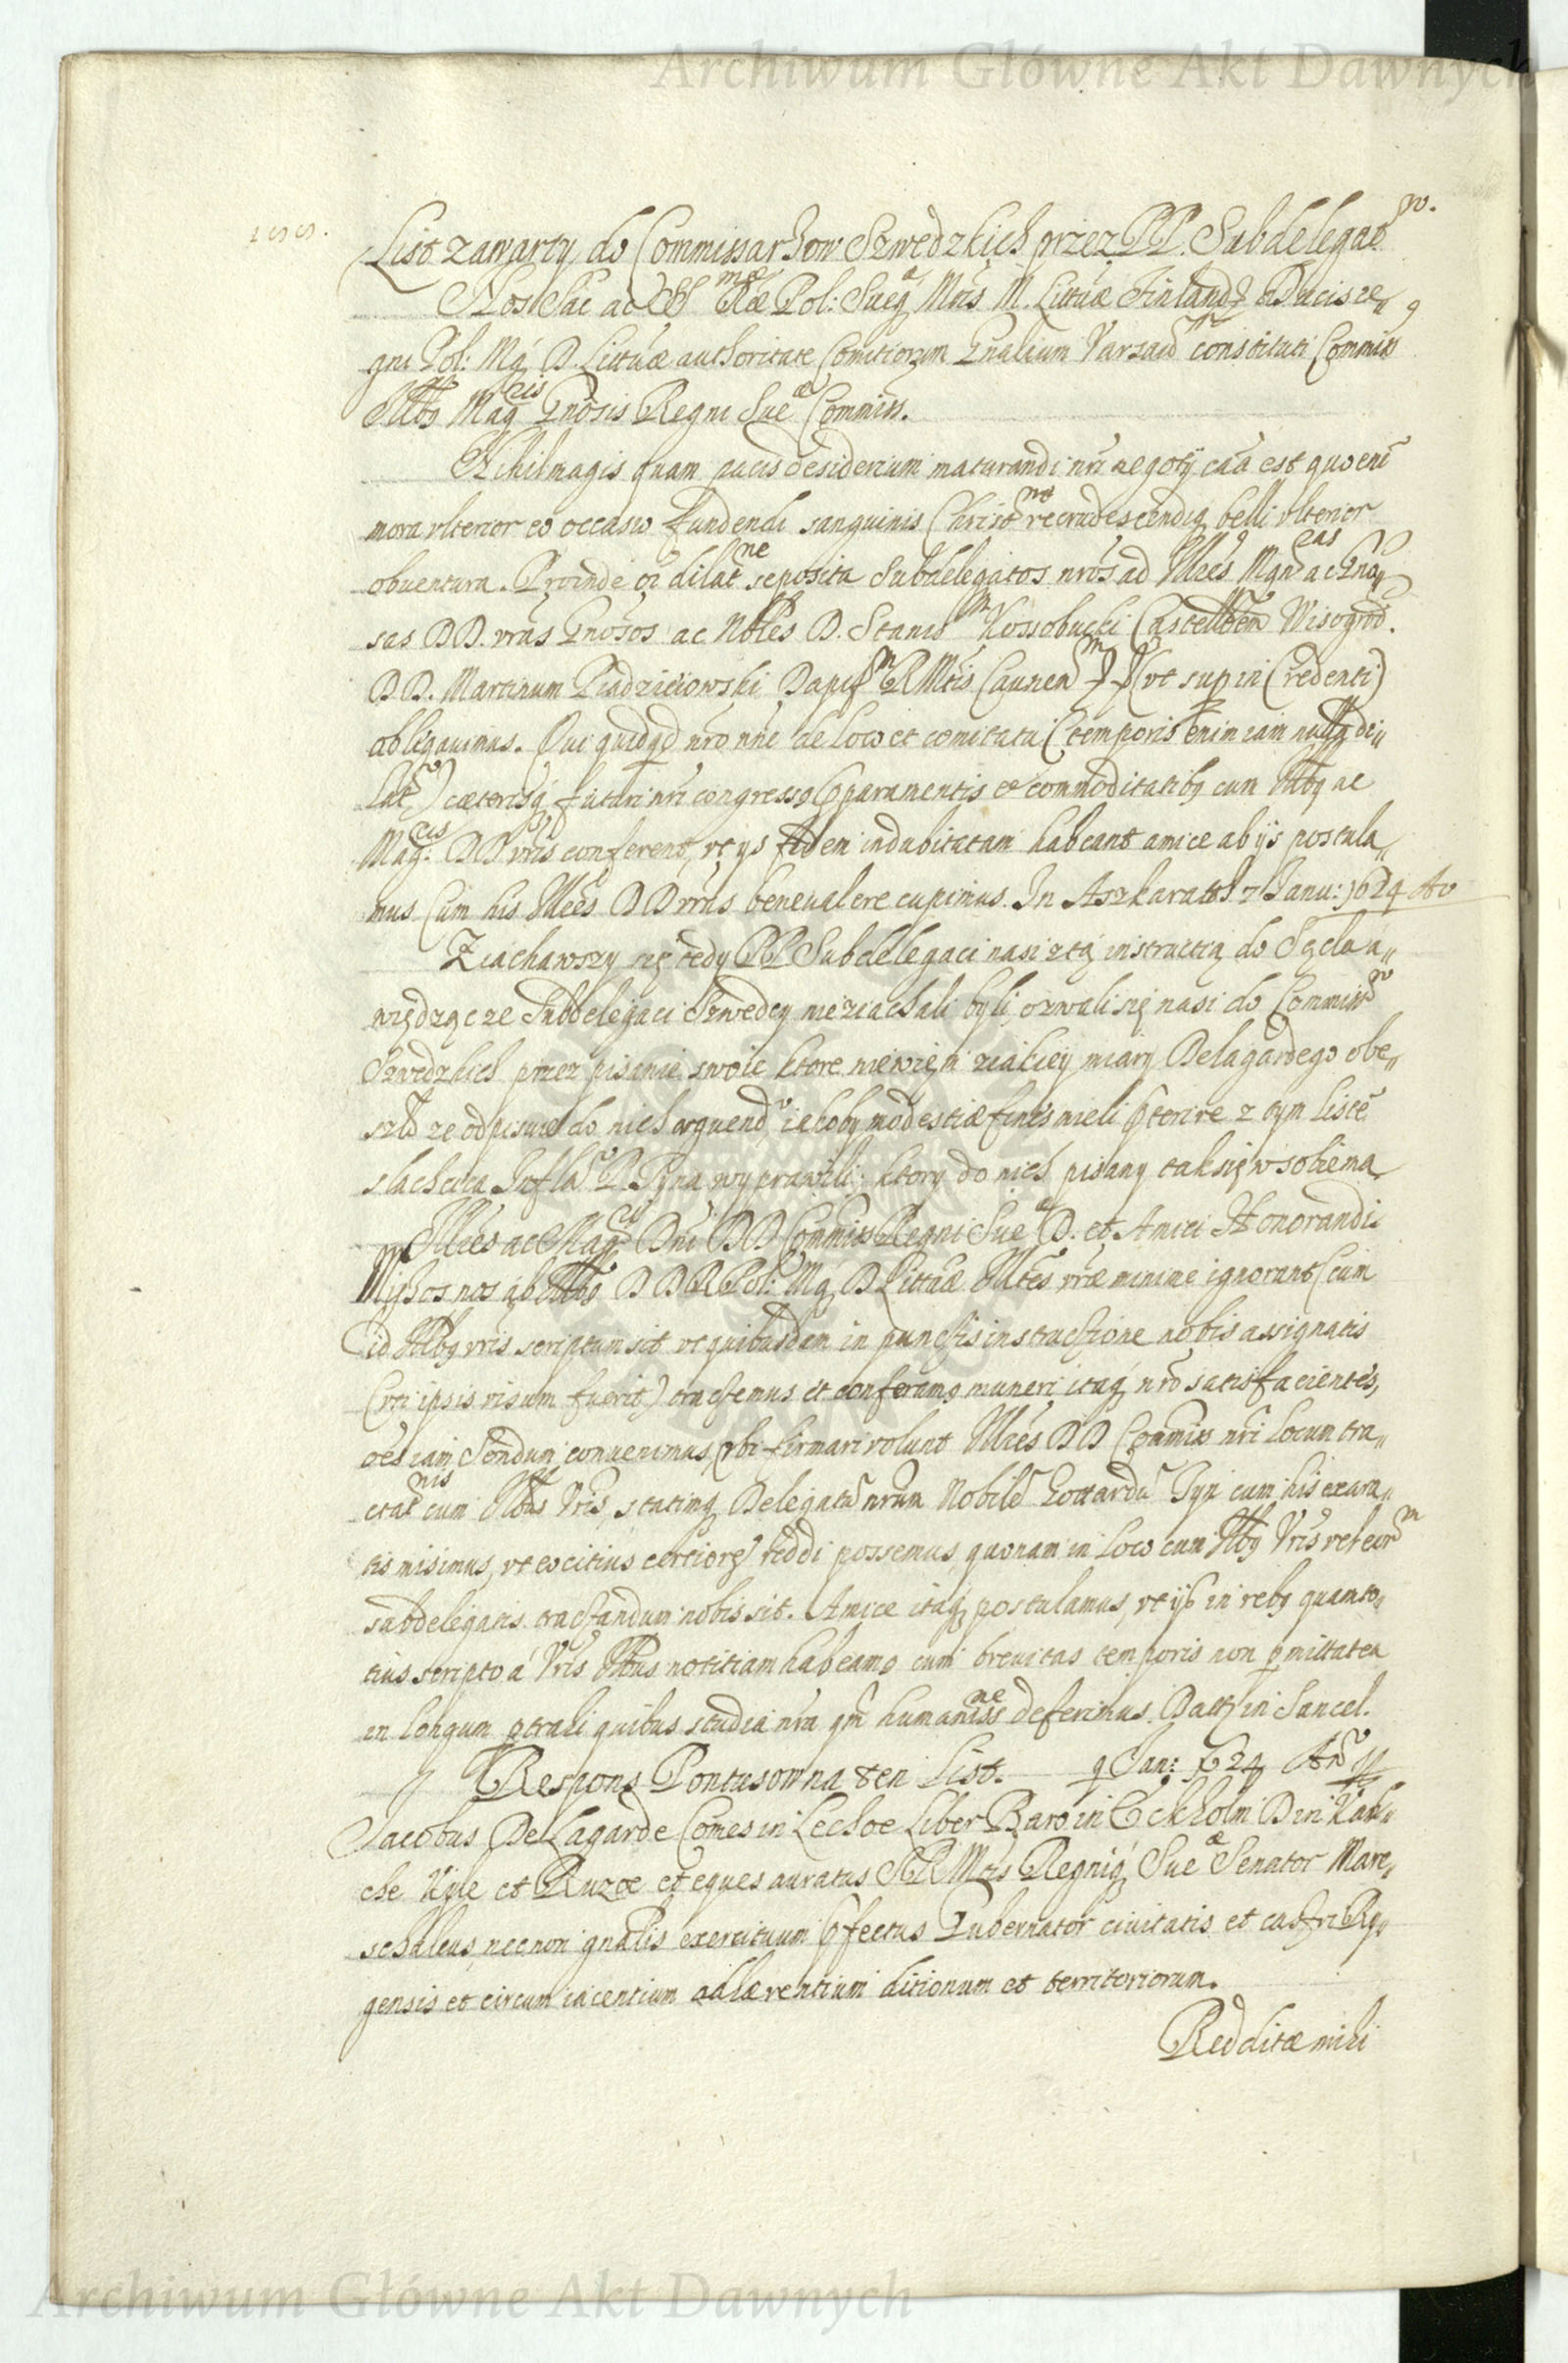 Archiwum Główne Akt Dawnych
List zawarty do Commissarzow Szwedzkich przez PP. Subdelegat w.
Nos Sac ac Regiae Pol: Sueq Mtis M. Littuae Finland Ducis re„
gni Pol: Mg D. Littuae authoritate Comitiorum Gnalium Varsaw constituti Commiss
Illbq Mag cis Gnosis Regni Sue æ Commiss.
Nihil magis quam pacis desiderium maturandi nri negotÿ caa est quo eni
mora vlterior eo occasio fundendi sanguinis Christ ni recrudescendiq belli vlterior
obuentura. Proinde oi dilat ne seposita Subdelegatos nros ad Illres Mgn cas ac Gno„
sas DD. vras Gnosos ac Nobles D. Stanis Kossobucki Castellan Wisogrod.
DD. Martinum Dapif RMtis Caunen (vt sup in Credenti)
ablegauimus. Qui quidqd nro nne de loco et comitatu (temporis enim iam nulla di„
lat) cæterisq futuri nri congressq pparamentis et commoditatibq cum Illbq ac
Mag cis DD vris conferent, vt ys fidem indubitatam habeant amice ab ijs postula„
mus. Cum his Illres DD vras bene valere cupimus. In Aszkarath 7 Janu: 1624 Ao
Ziachawszy się tedy PP Subdelegaci nasi z tą instructią do a„
więdząc ze Subdelegaci Szwedcy nie ziachali byli, ozwali się nasi do Commiss w
Szwedzkich przez pisanie swoie ktore niewiem ziakiey miary Delagardego obe„
szło ze odpisuie do nich arguendo iakoby modestiæ fines mieli pterire z tym liste
slachcica Infla P. Tyna wyprawili, ktory do nich pisany tak się w sobie ma
Illres ac Mag ci Dni DD Commiss Regni Sue æ D. et Amici Honorandi.
Missos nos ab Illbq DD R Pol: Mg D Littuæ Illtes vræ minime ignorant (cum
id Illbq vris scriptum sit vt quibusdam in punctis instructione nobis assignatis
(vti ipsis visum fuerit) tractemus et conferamq muneri itaq nro satisfacientes,
oes iam convenimus, vbi firmari volunt Illres DD Commiss nri locum tra„
ctat nis cum Illbus Vris, statimq Delegatu nrum Nobile Gottardu Tyn cum his exara„
tis misimus, vt eo citius certiores reddi possemus quonam in loco cum Illbq Vris vel eor m
subdelegatis tractandum nobis sit. Amice itaq postulamus, vt ijs in rebq quanto„
tius scripto á Vris Illbus notitiam habeamq cum breuitas temporis non pmittat ea
in longum ptrahi quibus studia nra qm humaniss ne deferimus. Datt in Sancel.
Respons Pontusow na ten List. 9 Jan: 1624 Ano
Jacobus De Lagarde Comes in Leckoe Liber Baro in Eckholm Dn in Kal„
che Kyle et Runzæ et eques auratus SRMtis Regniq Sue æ Senator Mare„
schalcus necnon gnalis exercituum pfectus Gubernator ciuitatis et castri Ry„
gensis et circum iacentium adhærentium ditionum et territoriorum.
Redditæ mihi
Archiwum Główne Akt Dawnych